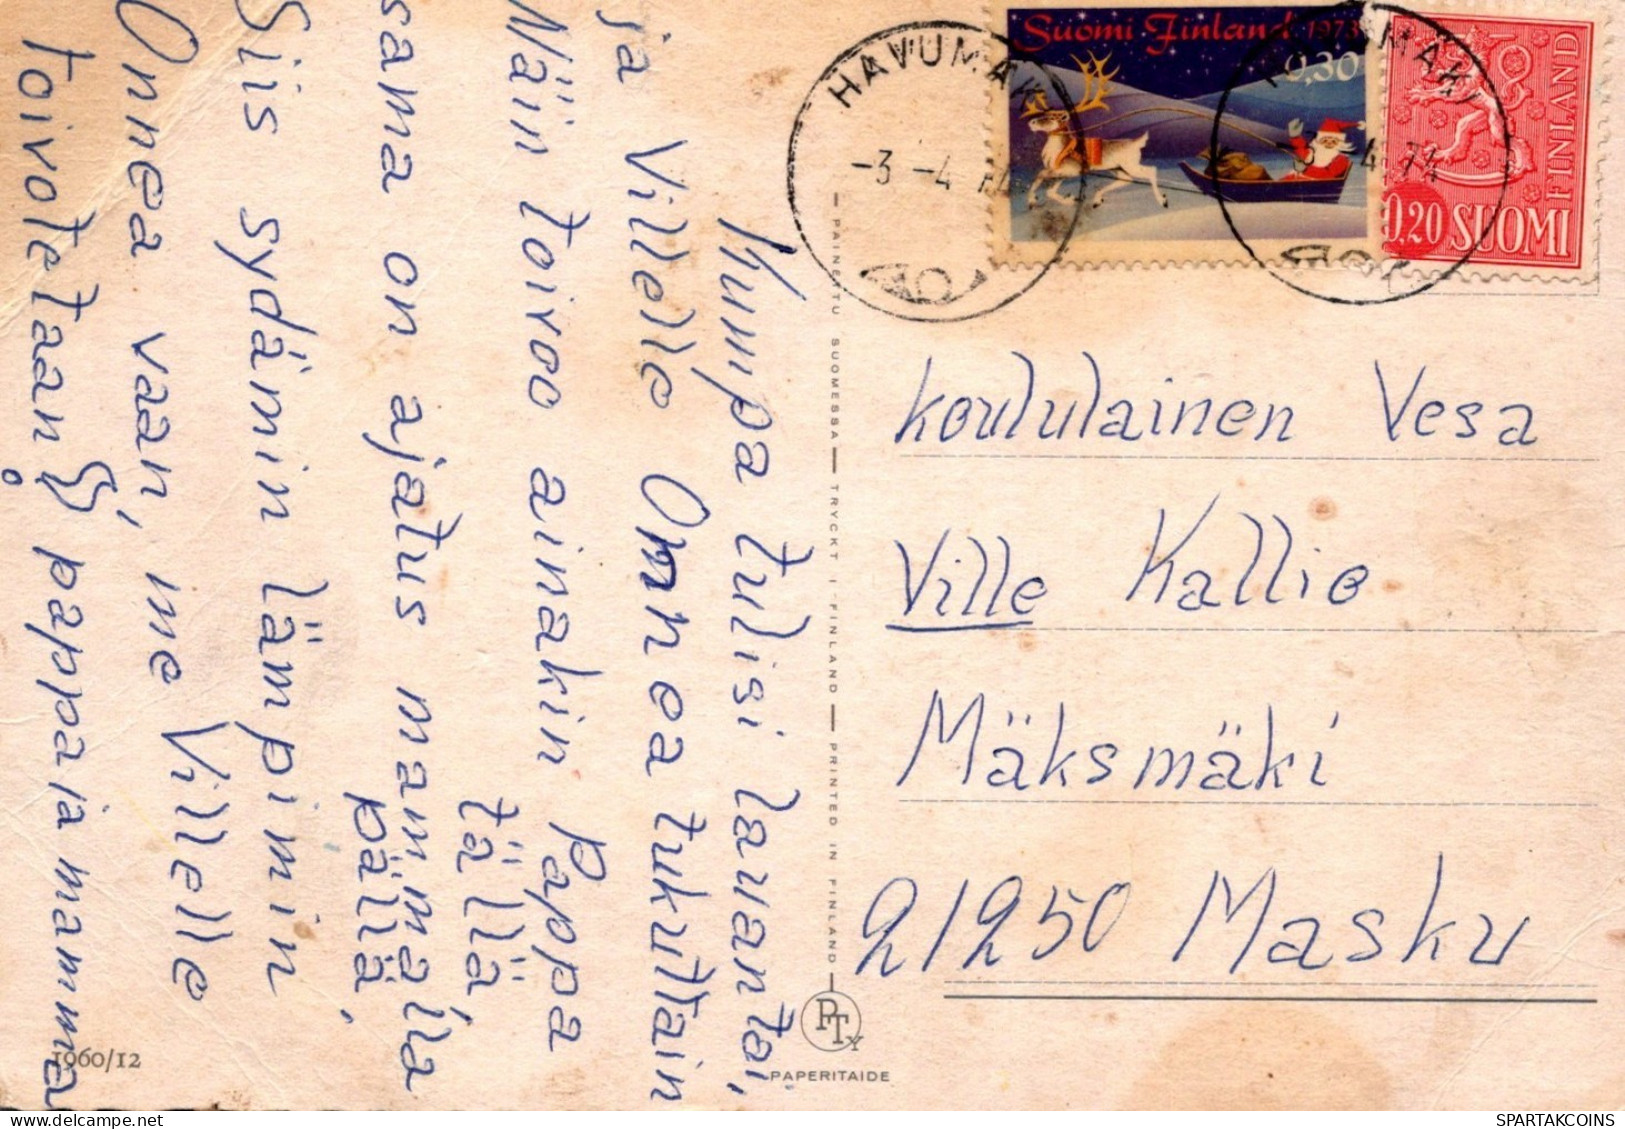 Kumpa tulisi lauantai,
ja Ville Ville Onnea tukuttain
Näin toivoo ainakin Pappa
tällä
sama on ajatus mammalla
pällä
Siis sydämin lämpimin
Onnea vaan, me Villelle
toivotetaan pappa ja mamma
1960/12
PAINETTU SUOMESSA — TRYCKT I FINLAND — PRINTED IN FINLAND
PTY
PAPERITAIDE
HAVUMÄKI
-3.-4.74
Suomi Finland 1973
0,30
-3.-4.74
0,20 SUOMI
FINLAND
koululainen Vesa
Ville Kallio
Mäksmäki
21250 Masku
SPARTAKCOINS